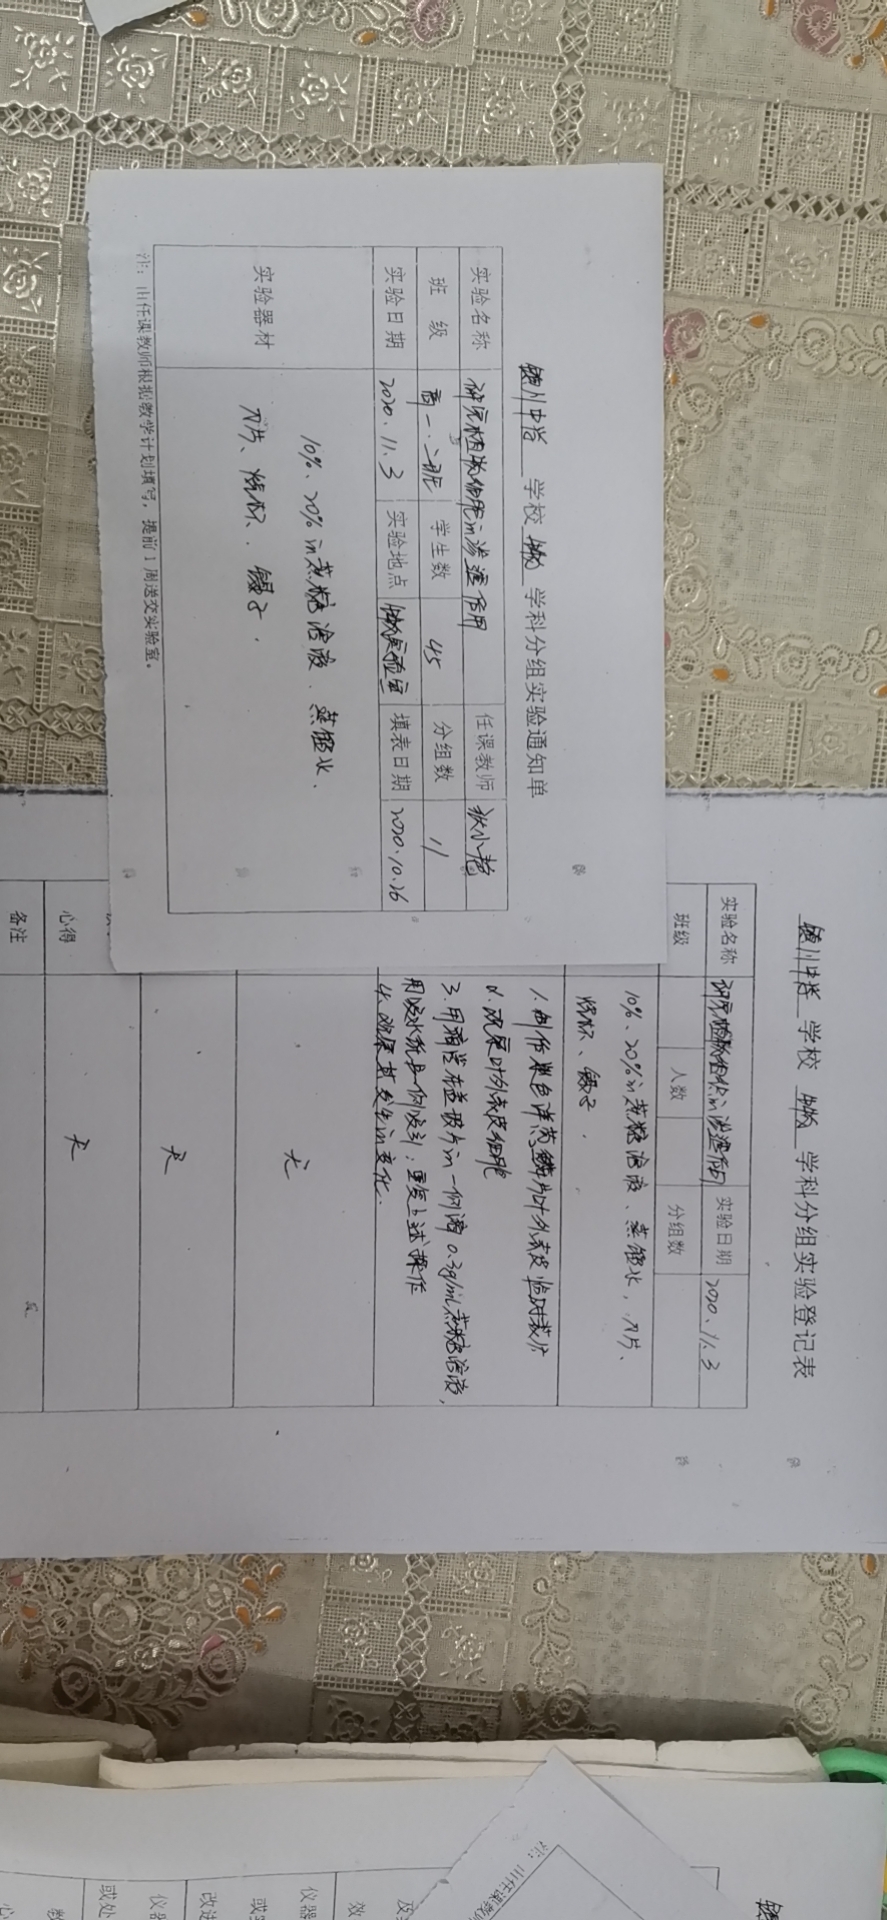 镇川中学 学校 生物 学科分组实验通知单
实验名称 研究植物细胞的渗透作用 任课教师
班 级 高一.二班 学生数 45 分组数 11
实验日期 2020.11.3 实验地点 生物实验室 填表日期 2020.10.26
实验器材
10%、20%的蔗糖溶液、蒸馏水、
刀片、烧杯、镊子.
注：由任课教师根据教学计划填写，提前1周送交实验室。
镇川中学 学校 生物 学科分组实验登记表
实验名称 研究植物细胞的渗透作用 实验日期 2020.11.3
班级 人数 分组数
10%、20%的蔗糖溶液、蒸馏水，刀片、
烧杯、镊子.
1.制作紫色洋葱鳞片叶外表皮临时装片
2.观察叶外表皮细胞
3.用滴管在盖玻片的一侧滴0.3g/mL蔗糖溶液，
用吸水纸另一侧吸引；重复上述操作
4.观察其发生的变化.
无
无
心得 无
备注
注：由任课教师
仪器
效
改进
或
仪器
或处
教
心